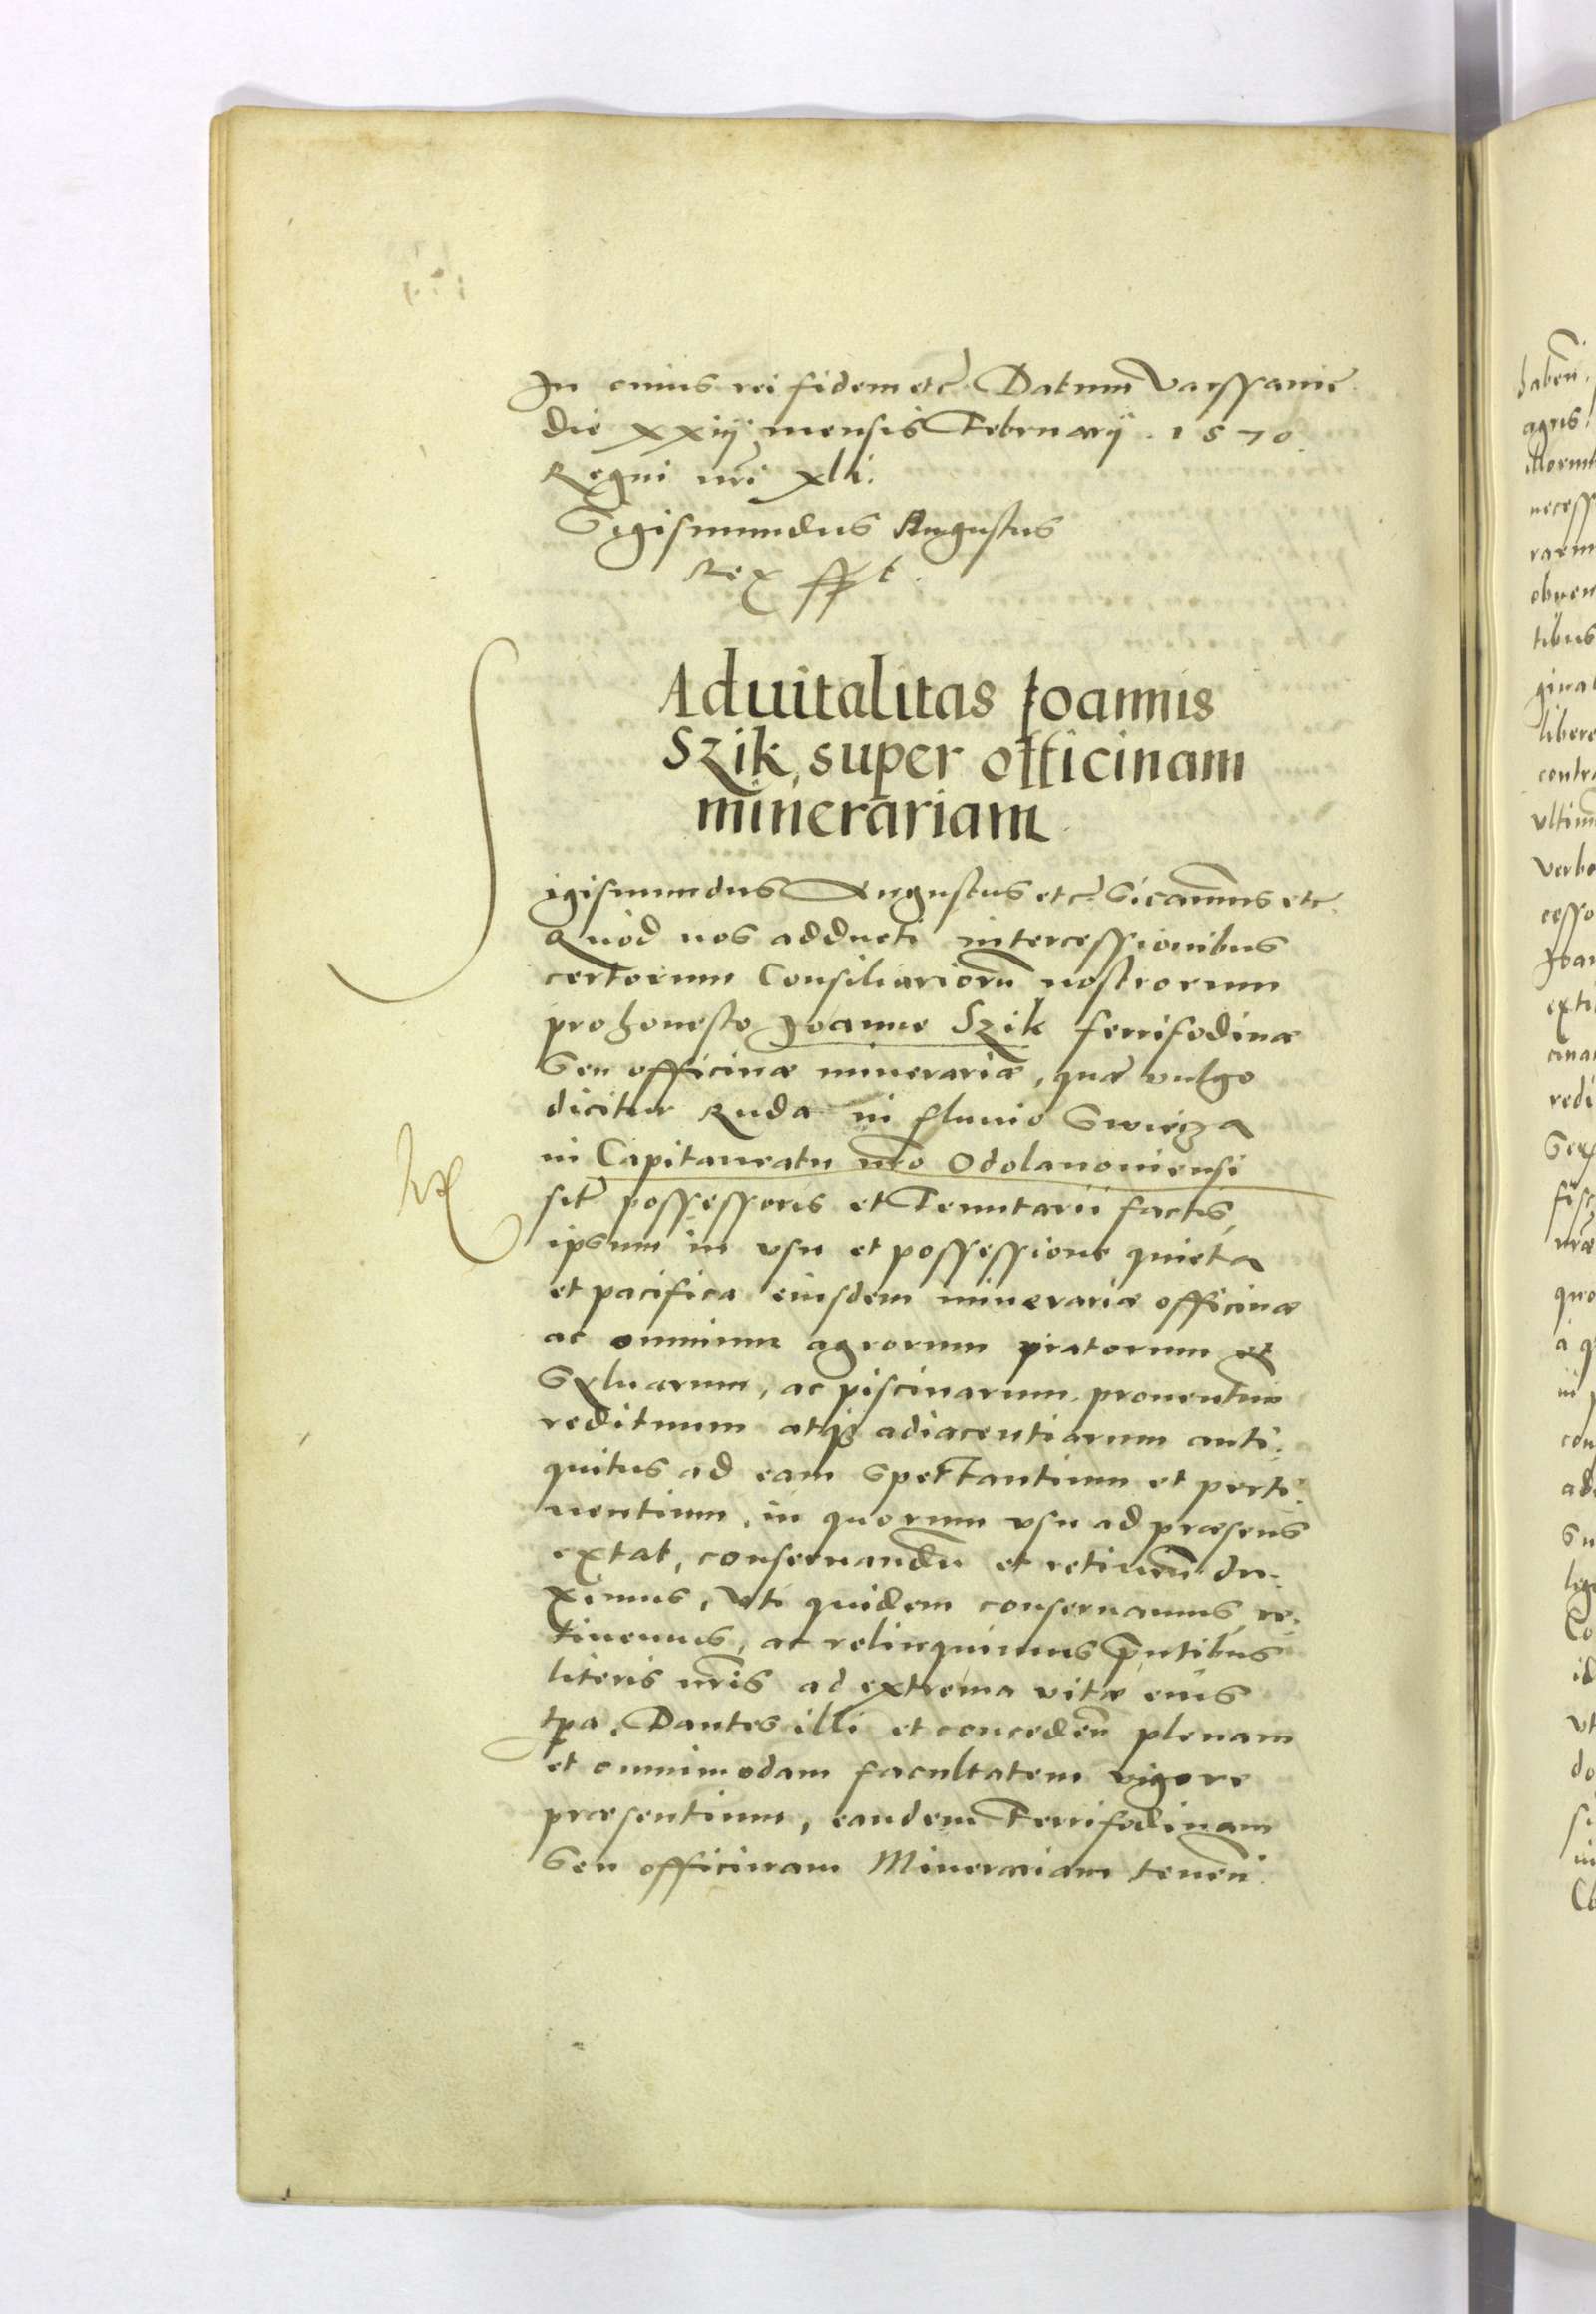 In cuius rei fidem etc̄. Datum Varssaviē
die xxiij mensis Februarij. 1570.
Regni nr̄i xli.
Sigismundus Augustus
Rex sspt.
Aduitalitas Joannis
Szik, super officinam
minerariam
Sigismundus Augustus etc̄. Significamus etc.
Quod nos adducti intercessionibus
certorum Consiliariorū nostrorum
pro honesto Joanne Szik ferrifodinæ
seu officinæ minerariæ, quæ vulgo
dicitur Ruda in fluvio Gwięza
in Capitaneatu nr̄o Odolanoviensi
sitæ possessoris et Tenutarii factis,
ipsum in usu et possessione quieta
et pacifica eiusdem minerariæ officinæ
ac omnium agrorum pratorum et
syluarum, ac piscinarum, prouentuū
redituum atq3 adiacentiarum anti-
quitus ad eam spectantium et perti-
nentium, in quorum vsu ad præsens
extat, conseruandū et retinen̄. du-
ximus, Vti quidem conseruamus, re-
tinemus, ac relinquimus p̄ntibus
literis nr̄is ad extrema vitæ eius
tpa. Dantes illi et conceden̄ plenam
et omnimodam facultatem vigore
præsentium, eandem Ferrifodinam
seu officinam Minerariam tenen̄.
haben̄.
agris
necess